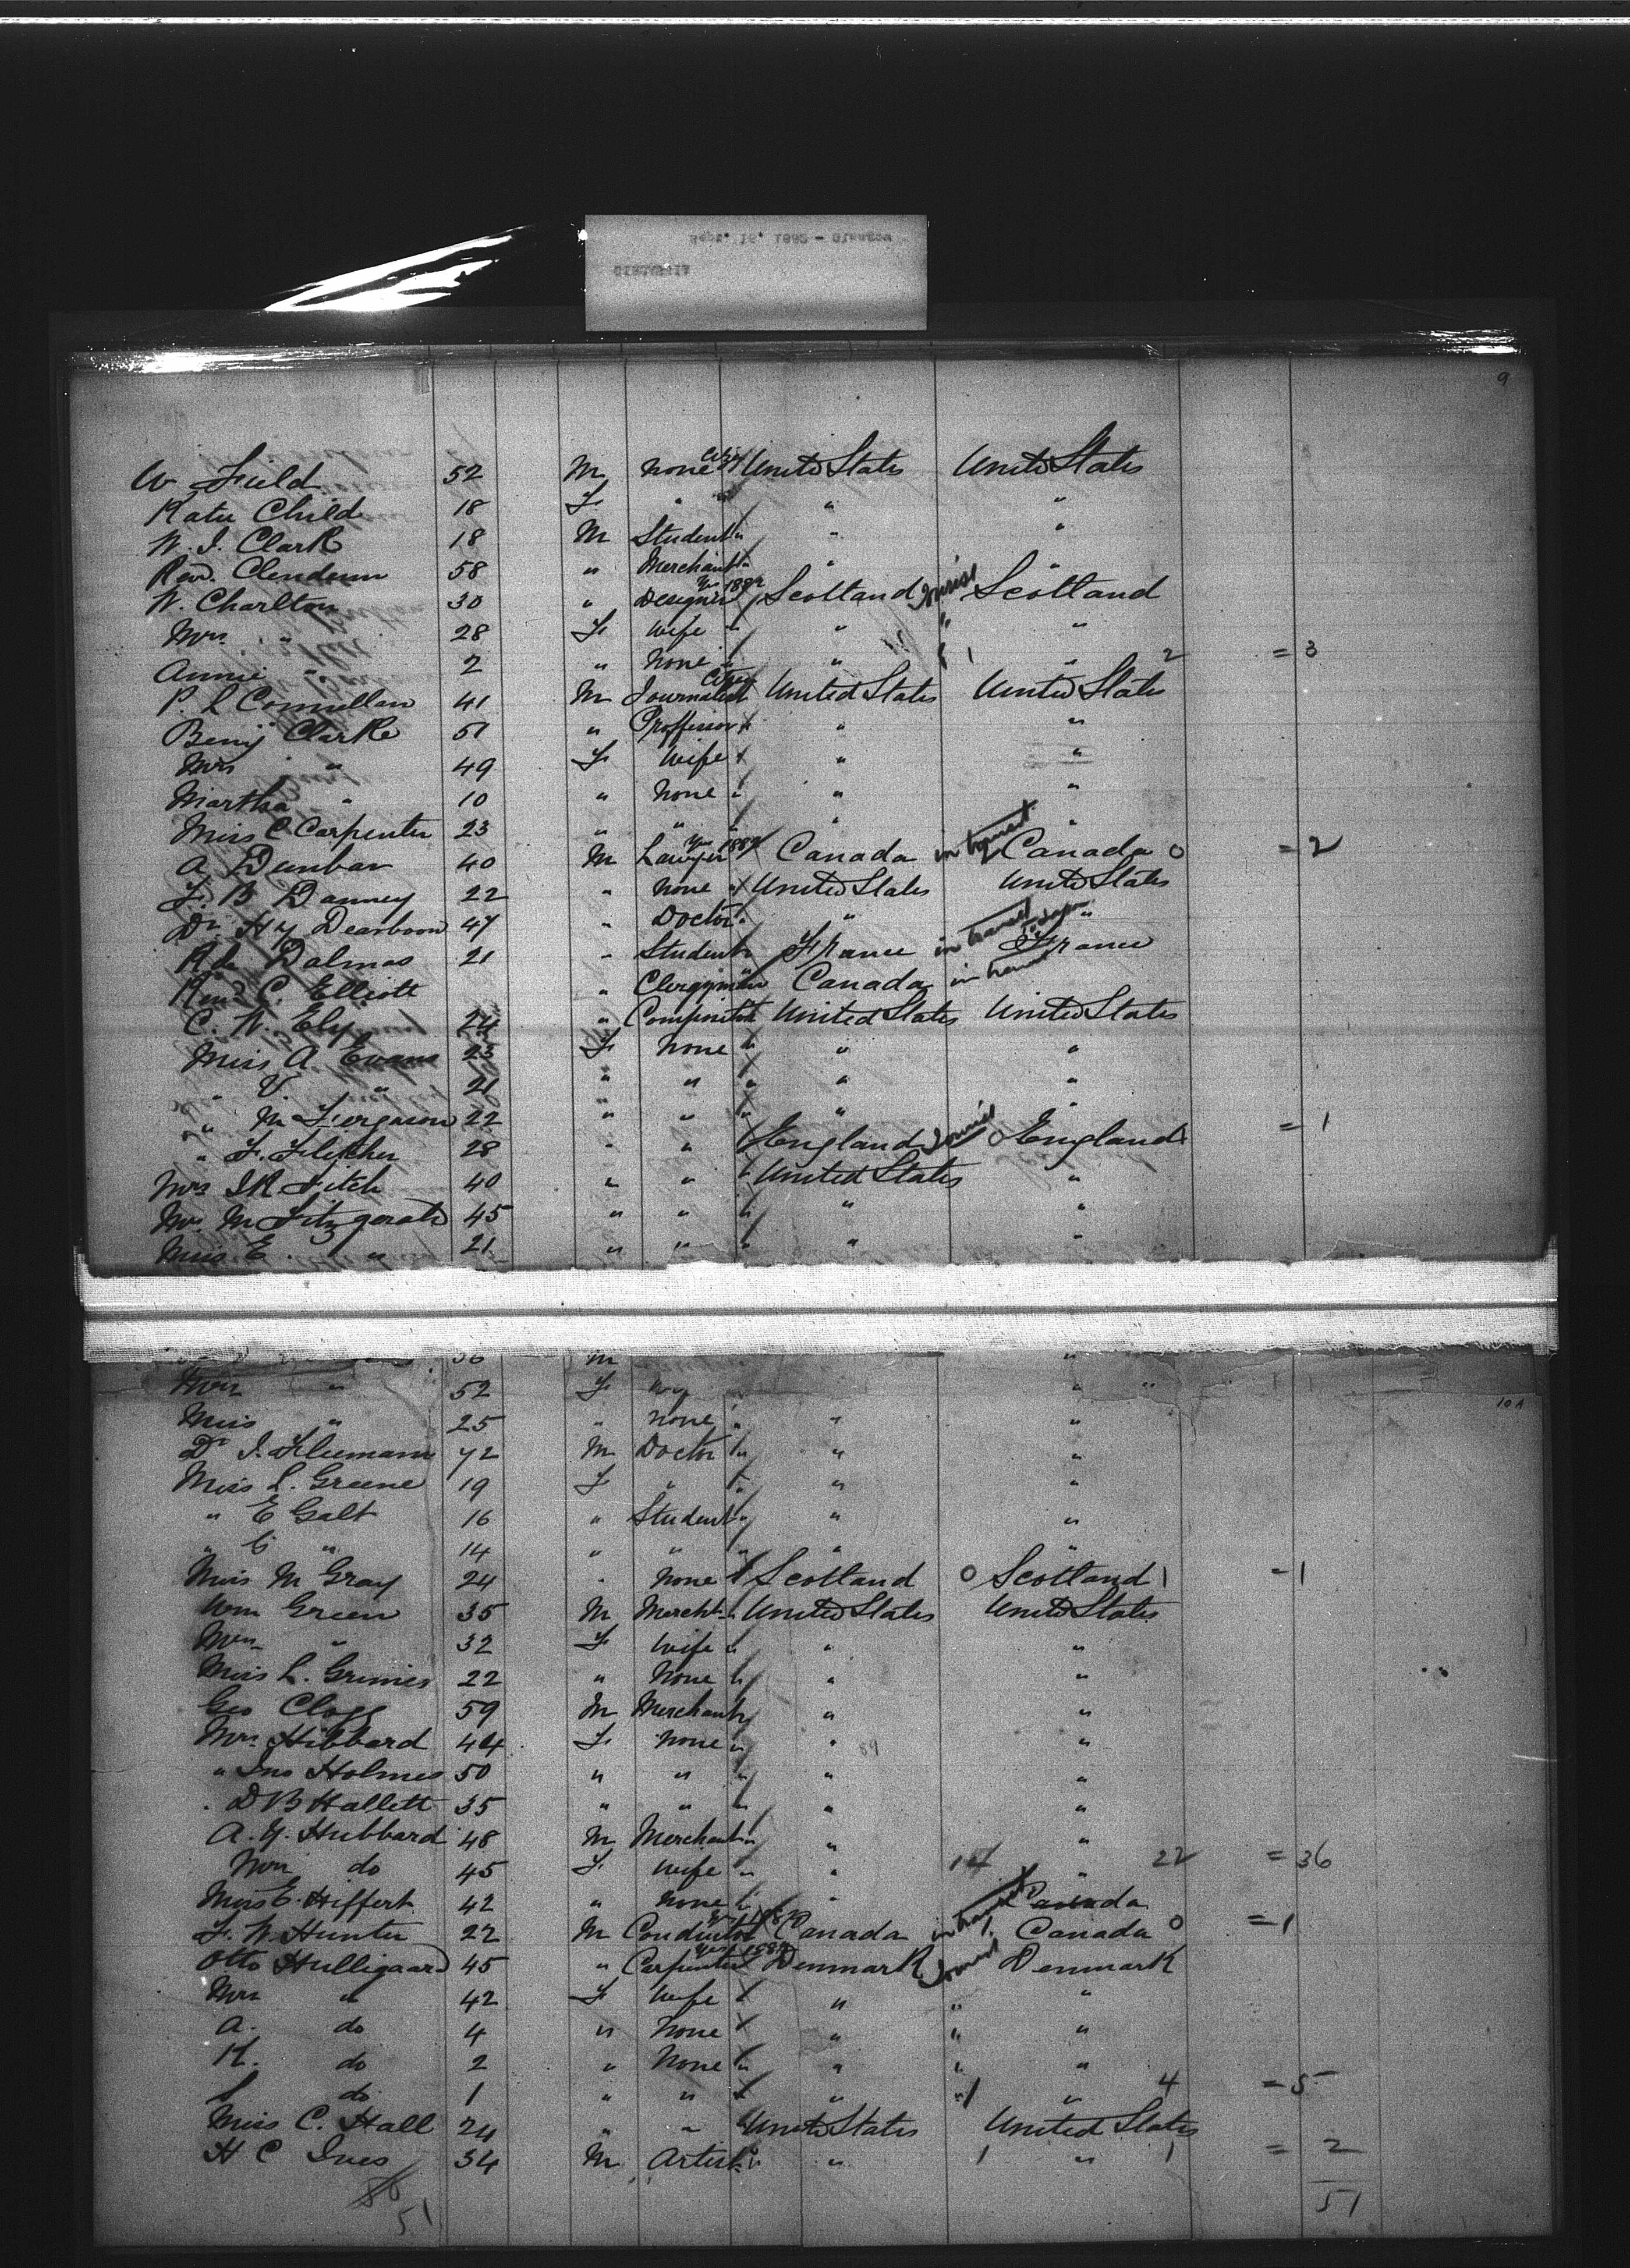 9
W Field 52 M None Citiz United States United States
Katie Child 18 F " " " "
W. J. Clark 18 M Student " " "
Rev. Clendenin 58 " Merchant " " "
W. Charlton 30 " Designer Yes 1882 Scotland Tourist Scotland
Mrs " 28 F Wife " " " "
Annie " 2 " None " " 1 " 2 = 3
P. L Connellan 41 M Journalist Citizen United States United States
Benj Clarke 51 " Proffessor " " "
Mrs " 49 F Wife " "
Martha " 10 " None " " "
Miss C Carpenter 23 " " " " "
A Dunbar 40 M Lawyer Yes 1882 Canada in transit 2 Canada 0 = 2
F. B Danney 22 " None " United States United States
Dr. Hy Dearborn 47 " Doctor " " "
R de Dalmas 21 " Student " France in transit France
Revd C. Elliott " Clergyman " Canada in transit
C. W. Ely 24 " Compositor United States United States
Miss A. Evans 23 F None " " "
" V. " 21 " " " " "
" M Ferguson 22 " " " " "
" F. Fletcher 28 " " England Tourist 0 England 1 = 1
Mrs J R Fitch 40 " " " United States "
Mrs. M Fitzgerald 45 " " " " "
Miss E. " 21 " " " " "
36 M "
10A
Mrs " 52 F " "
Miss " 25 " None " " "
Dr J. Fleemann 72 M Doctor " " "
Miss L. Greene 19 F " " " "
" E Galt 16 " Student " " "
" C " 14 " " " " "
Miss M Gray 24 " None " Scotland 0 Scotland 1 = 1
Wm Green 35 M Mercht " United States United States
Mrs " 32 F Wife " " "
Miss L. Grimes 22 " None " " "
Geo Clogg 59 M Merchant " " "
Mrs Hibbard 44 F None " " 89 "
" Jno Holmes 50 " " " " "
" D B Hallett 35 " " " " "
A. Y. Hubbard 48 M Merchant " " "
Mrs do 45 F Wife " " 14 " 22 = 36
Miss E. Hiffert 42 " None " " Canada
F. W. Hunter 22 M Conductor Yes 1882 Canada in transit 1 Canada 0 = 1
Otto Hulligaard 45 " Carpenter Yes 1882 Denmark Tourist Denmark
Mrs " 42 F Wife " " "
A. do 4 " None " " "
K. do 2 " None " " " "
do 1 " " " " 1 " 4 = 5
Miss C. Hall 24 " " United States United States
H C Ives 34 M Artist " " 1 " 1 = 2
51 51